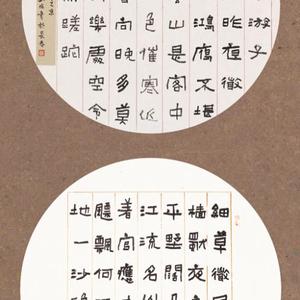 游子
昨夜微
鴻雁不堪
山是客中
色催寒近
向晚多莫
樂處空令
蹉跎
之京
細草微風
檣獨夜
平墅闊
江流名
著官應
飄飄何
地一沙